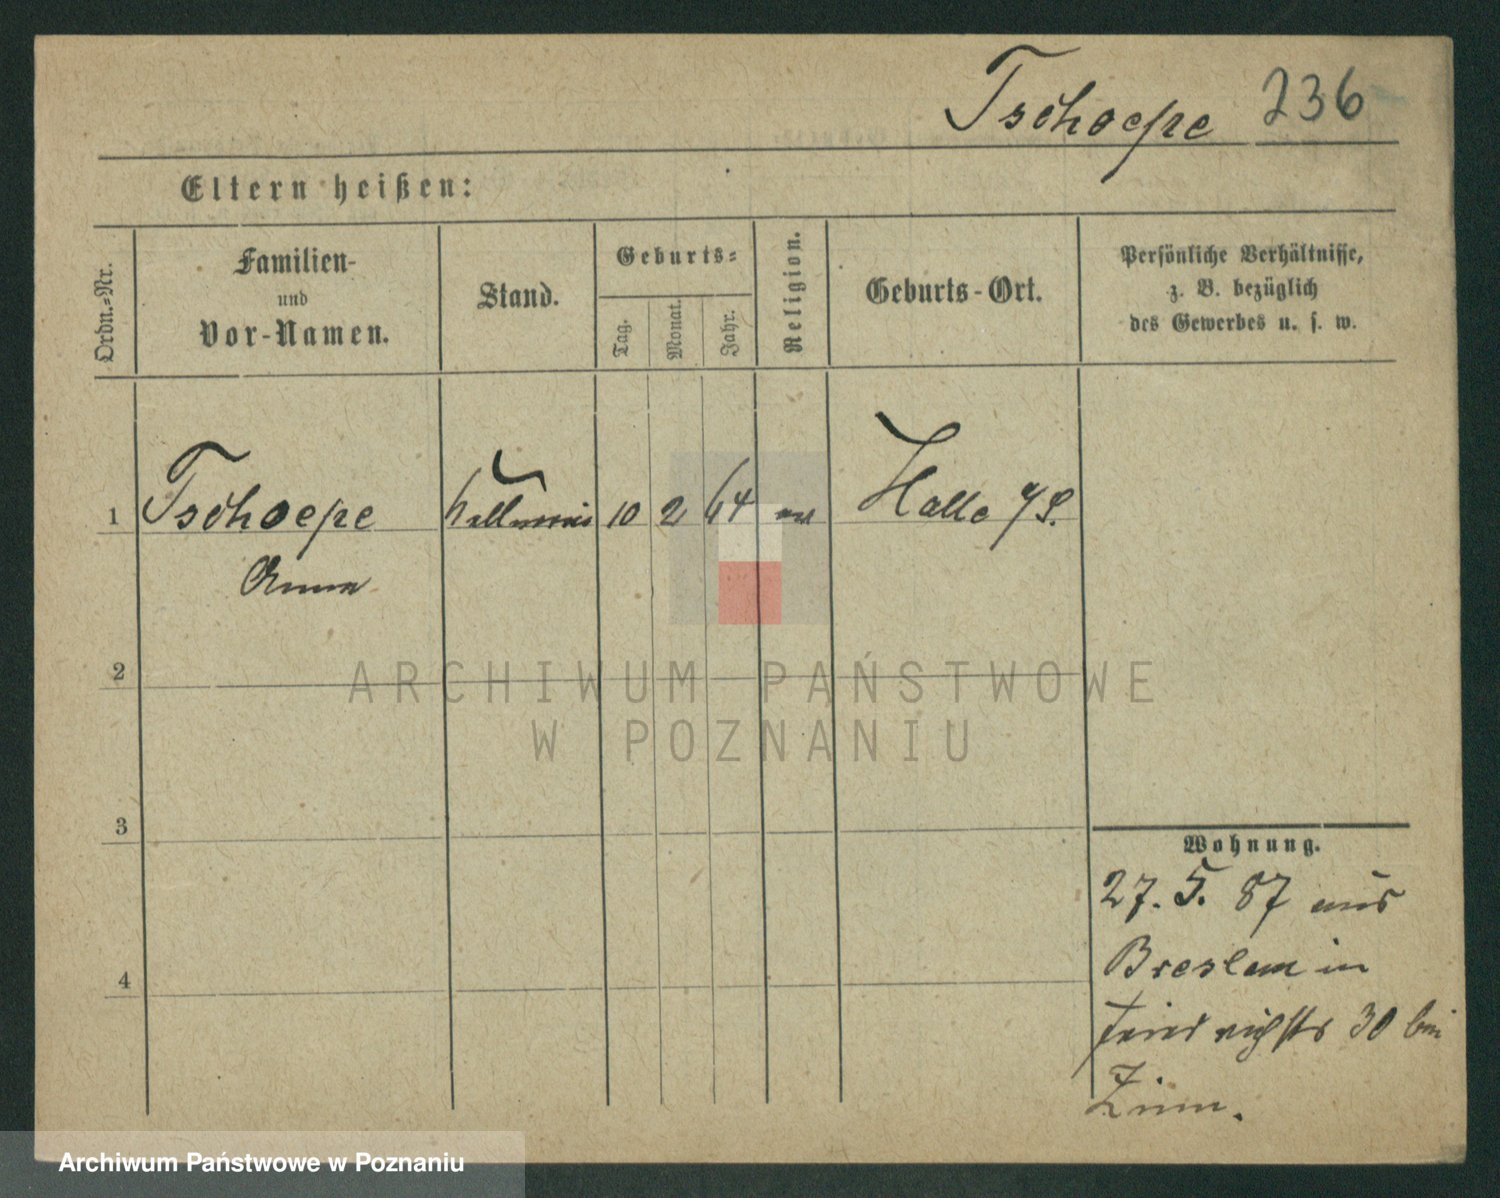 Tschoepe 236
Eltern heißen:
Ordn.=Nr.
Familien-
und
Vor-Namen.
Stand.
Geburts=
Tag.
Monat.
Jahr.
Religion.
Geburts-Ort.
Persönliche Verhältnisse,
z. B. bezüglich
des Gewerbes u. s. w.
1 Tschoepe Kellnerin 10 2 64 ev Halle a/S.
Anna
2
3
4
Wohnung.
27. 5. 87 aus
Breslau in
Friedrichstr 30 bei
Zinn.
ARCHIWUM PAŃSTWOWE
W POZNANIU
Archiwum Państwowe w Poznaniu